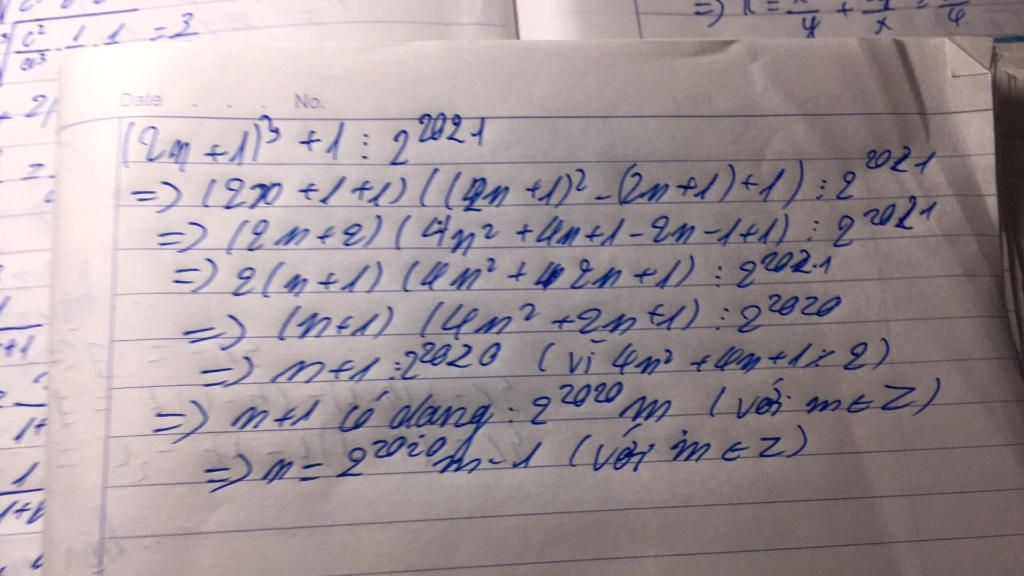 =) K = x/y + y/x
c²/a³ . 1 . 1 = 3
Date . . . . No.
(2n + 1)³ + 1 ⋮ 2²⁰²¹
=) (2n + 1 + 1) ((2n + 1)² - (2n + 1) + 1) ⋮ 2²⁰²¹
=) (2n + 2) (4n² + 4n + 1 - 2n - 1 + 1) ⋮ 2²⁰²¹
=) 2(n + 1) (4n² + 2n + 1) ⋮ 2²⁰²¹
=) (n + 1) (4n² + 2n + 1) ⋮ 2²⁰²⁰
=) n + 1 ⋮ 2²⁰²⁰ (vì 4n² + 4n + 1 ⋮̸ 2)
=) n + 1 có dạng : 2²⁰²⁰ m (với m ∈ Z)
=) n = 2²⁰²⁰ m - 1 (với m ∈ Z)